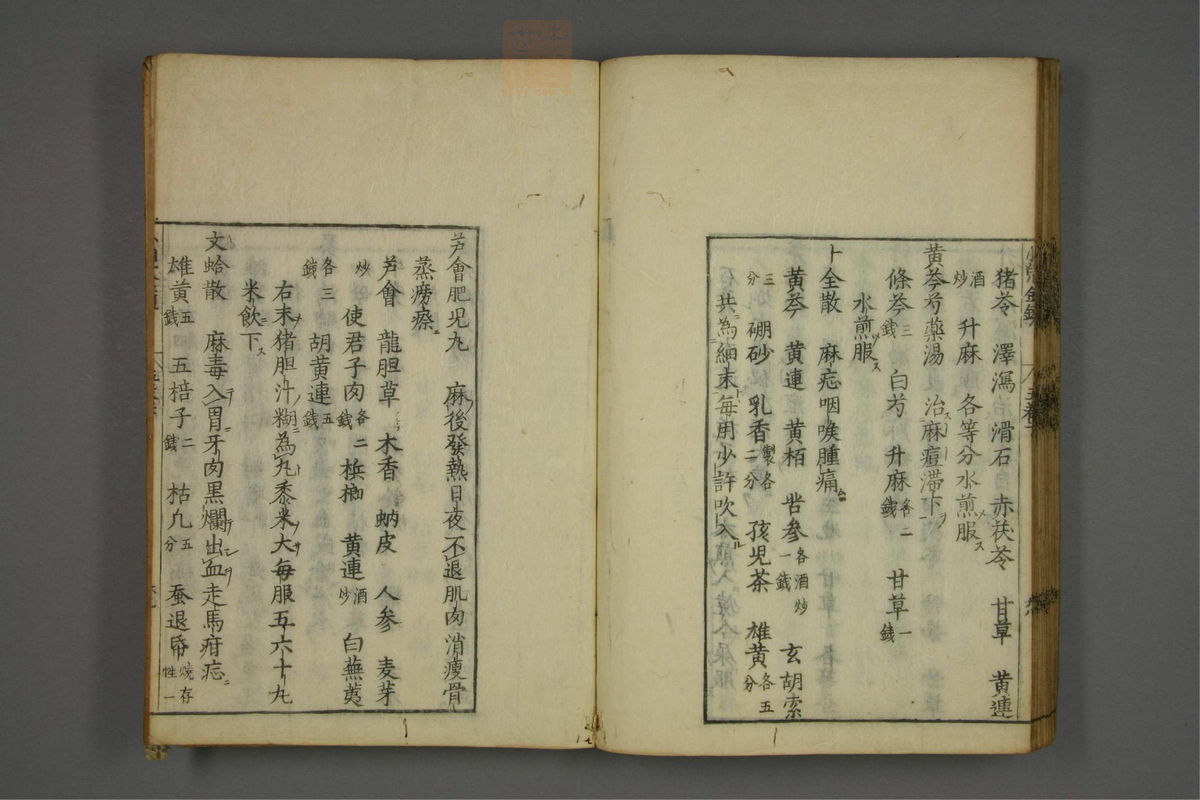 猪苓 澤瀉 滑石 赤茯苓 甘草 黄連
酒炒 升麻 各等分水煎服
黄芩芍薬湯 治麻痘滞下
條芩三錢 白芍 升麻各二錢 甘草一錢
水煎服
卜全散 麻忘咽喉腫痛
黄芩 黄連 黄栢 苦参各酒炒一錢 玄胡索
三分 硼砂 乳香製各二分 孩児茶 雄黄各五分
共為細末毎用少許吹入
芦會肥児丸 麻後發熱日夜不退肌肉消痩骨
蒸癆瘵
芦會 龍胆草 木香 蚋皮 人参 麦芽
炒 使君子肉各二錢 梹榔 黄連酒炒 白蕪荑
各三錢 胡黄連五錢
右末猪胆汁糊為丸黍米大毎服五六十丸
米飲下
文蛤散 麻毒入胃牙肉黒爛出血走馬疳
雄黄五錢 五棓子二錢 枯凢五分 蚕退帋焼存性一